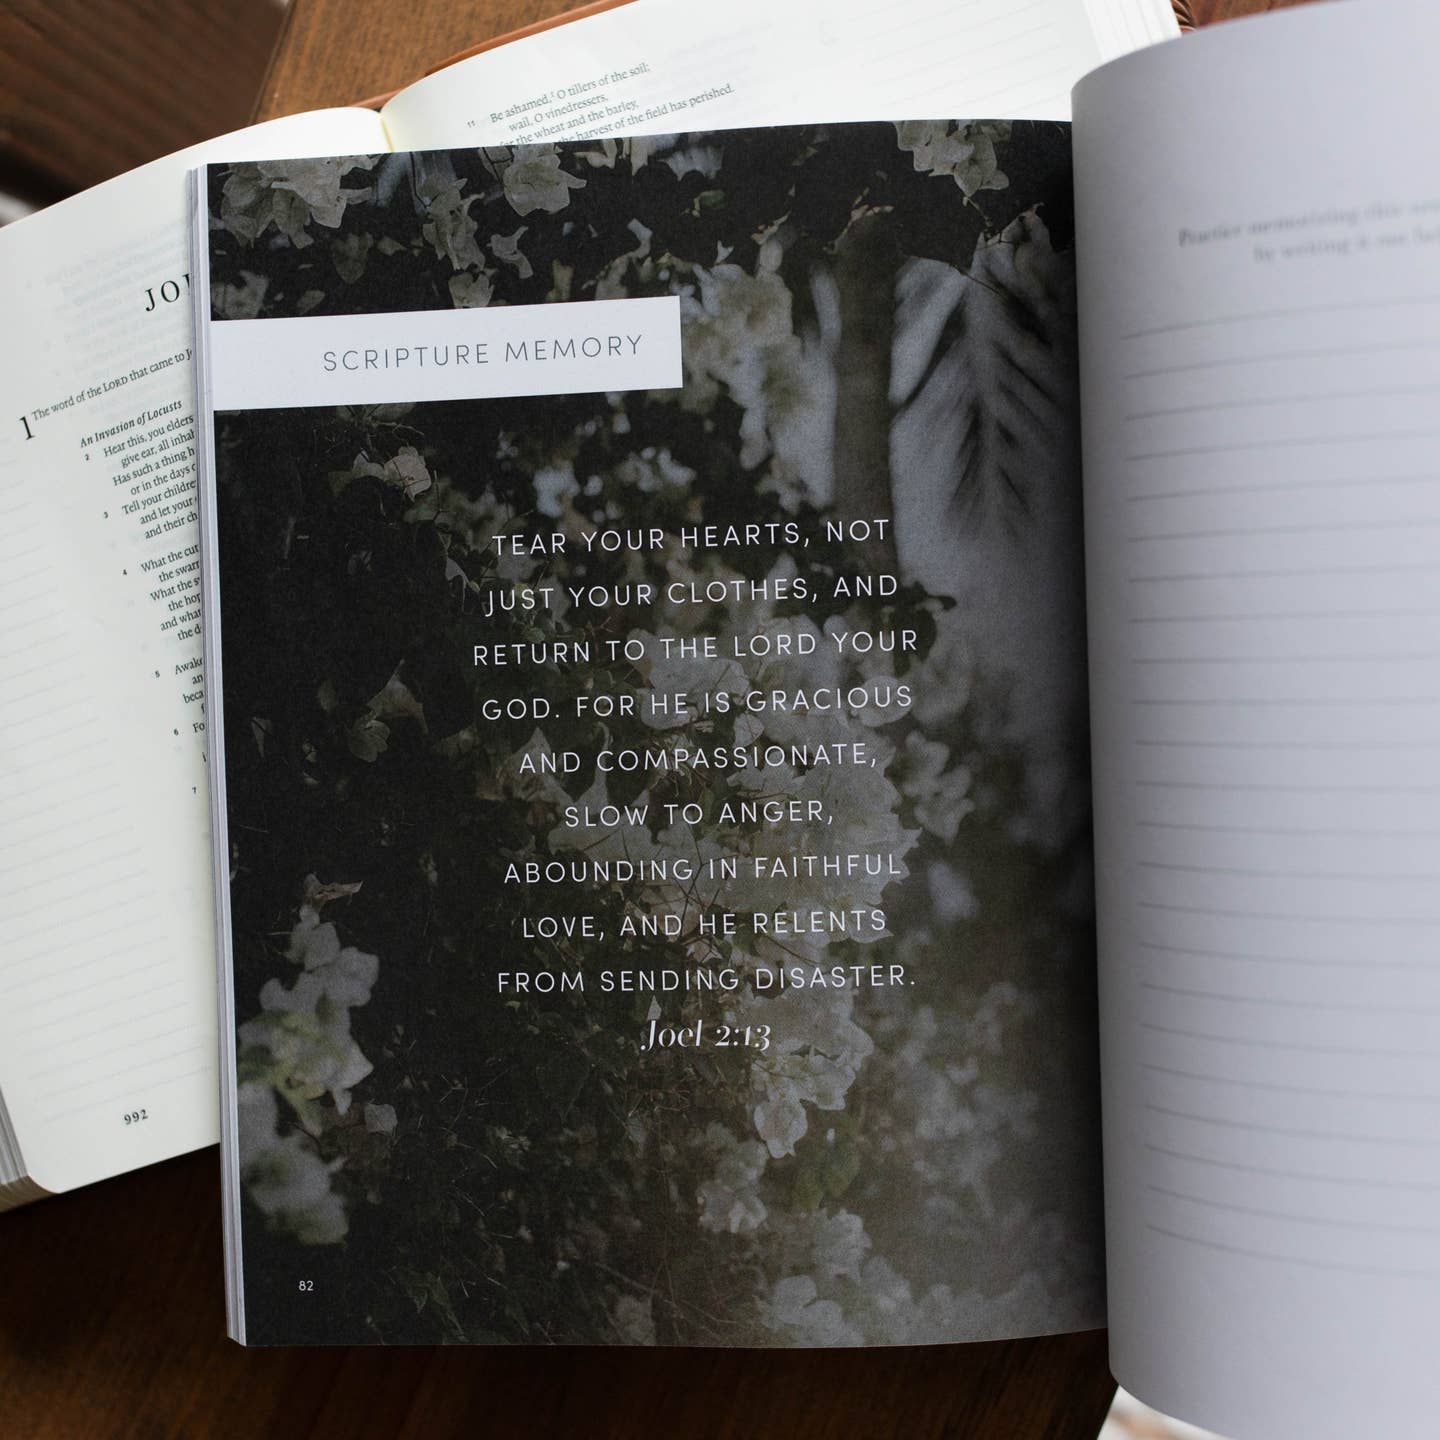 11 Be ashamed, O tillers of the soil;
wail, O vinedressers,
for the wheat and the barley,
the harvest of the field has perished.
JO
1 The word of the LORD that came to
An Invasion of Locusts
2 Hear this, you elders
give ear, all
Has such a thing
or in the days
3 Tell your
and let your
and their
4 What the
the
What the
the
and what
the
5
6
7
992
SCRIPTURE MEMORY
TEAR YOUR HEARTS, NOT
JUST YOUR CLOTHES, AND
RETURN TO THE LORD YOUR
GOD. FOR HE IS GRACIOUS
AND COMPASSIONATE,
SLOW TO ANGER,
ABOUNDING IN FAITHFUL
LOVE, AND HE RELENTS
FROM SENDING DISASTER.
Joel 2:13
82
Practice memorizing this
by writing it out